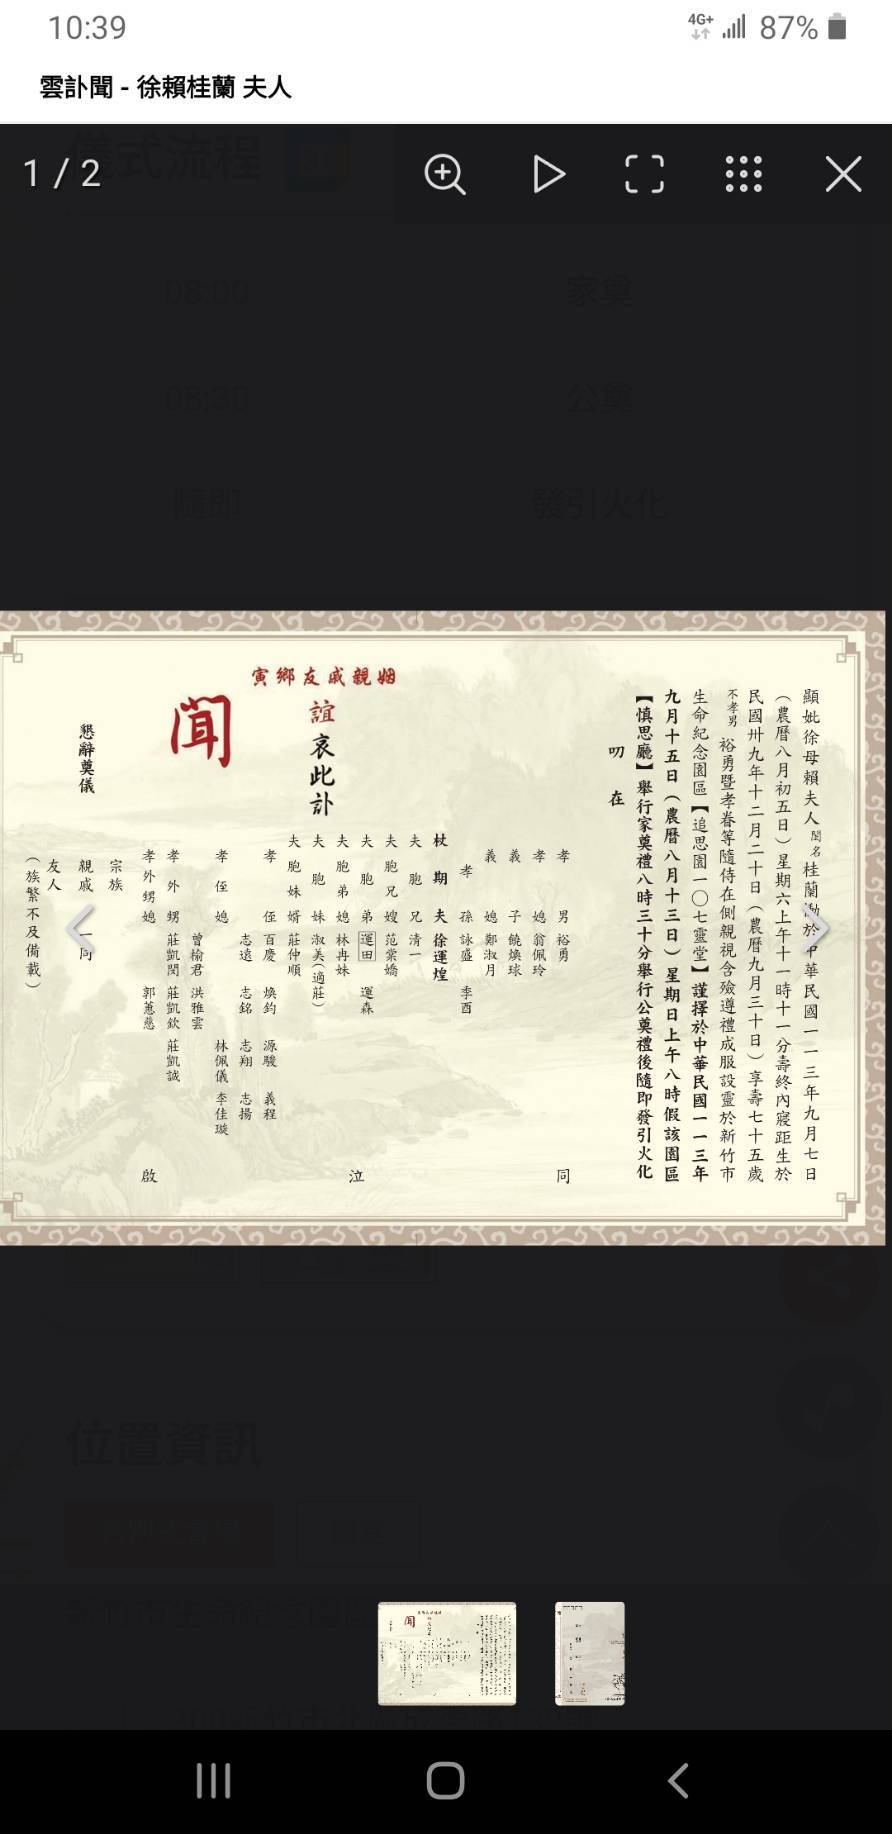 10:39
4G+ 87%
雲訃聞 - 徐賴桂蘭 夫人
儀式流程
1 / 2
08:00 家奠
08:30 公奠
隨即 發引火化
顯妣徐母賴夫人閨名桂蘭慟於中華民國一一三年九月七日
（農曆八月初五日）星期六上午十一時十一分壽終內寢距生於
民國卅九年十二月二十日（農曆九月三十日）享壽七十五歲
不孝男裕勇暨孝眷等隨侍在側親視含殮遵禮成服設靈於新竹市
生命紀念園區【追思園一〇七靈堂】謹擇於中華民國一一三年
九月十五日（農曆八月十三日）星期日上午八時假該園區
【慎思廳】舉行家奠禮八時三十分舉行公奠禮後隨即發引火化
叨在
姻親戚友鄉寅
誼哀此訃
聞
孝男 裕勇
孝媳 翁佩玲
義子 饒煥球
義媳 鄭淑月
孝孫 詠盛 季酉
杖期夫 徐運煌
夫胞兄 清一
夫胞兄嫂 范棠嬌
夫胞弟 運田 運森
夫胞弟媳 林冉妹
夫胞妹 淑美(適莊)
夫胞妹婿 莊仲順
孝侄 百慶 煥鈞 源駿 義程
志遠 志銘 志翔 志揚
孝侄媳 林佩儀 李佳璇
曾榆君 洪雅雲
孝外甥 莊凱閔 莊凱欽 莊凱誠
孝外甥媳 郭蕙慈
同 泣 啟
宗族
親戚 一同
友人
（族繁不及備載）
懇辭奠儀
位置資訊